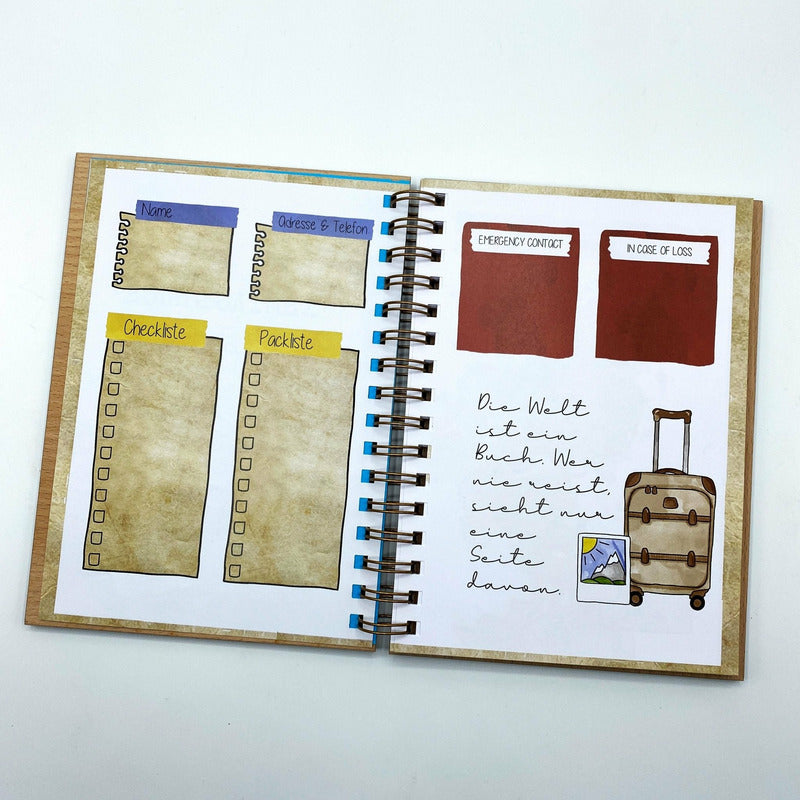 Name
Adresse & Telefon
Checkliste
Packliste
EMERGENCY CONTACT
IN CASE OF LOSS
Die Welt
ist ein
Buch. Wer
nie reist,
sieht nur
eine
Seite
davon.